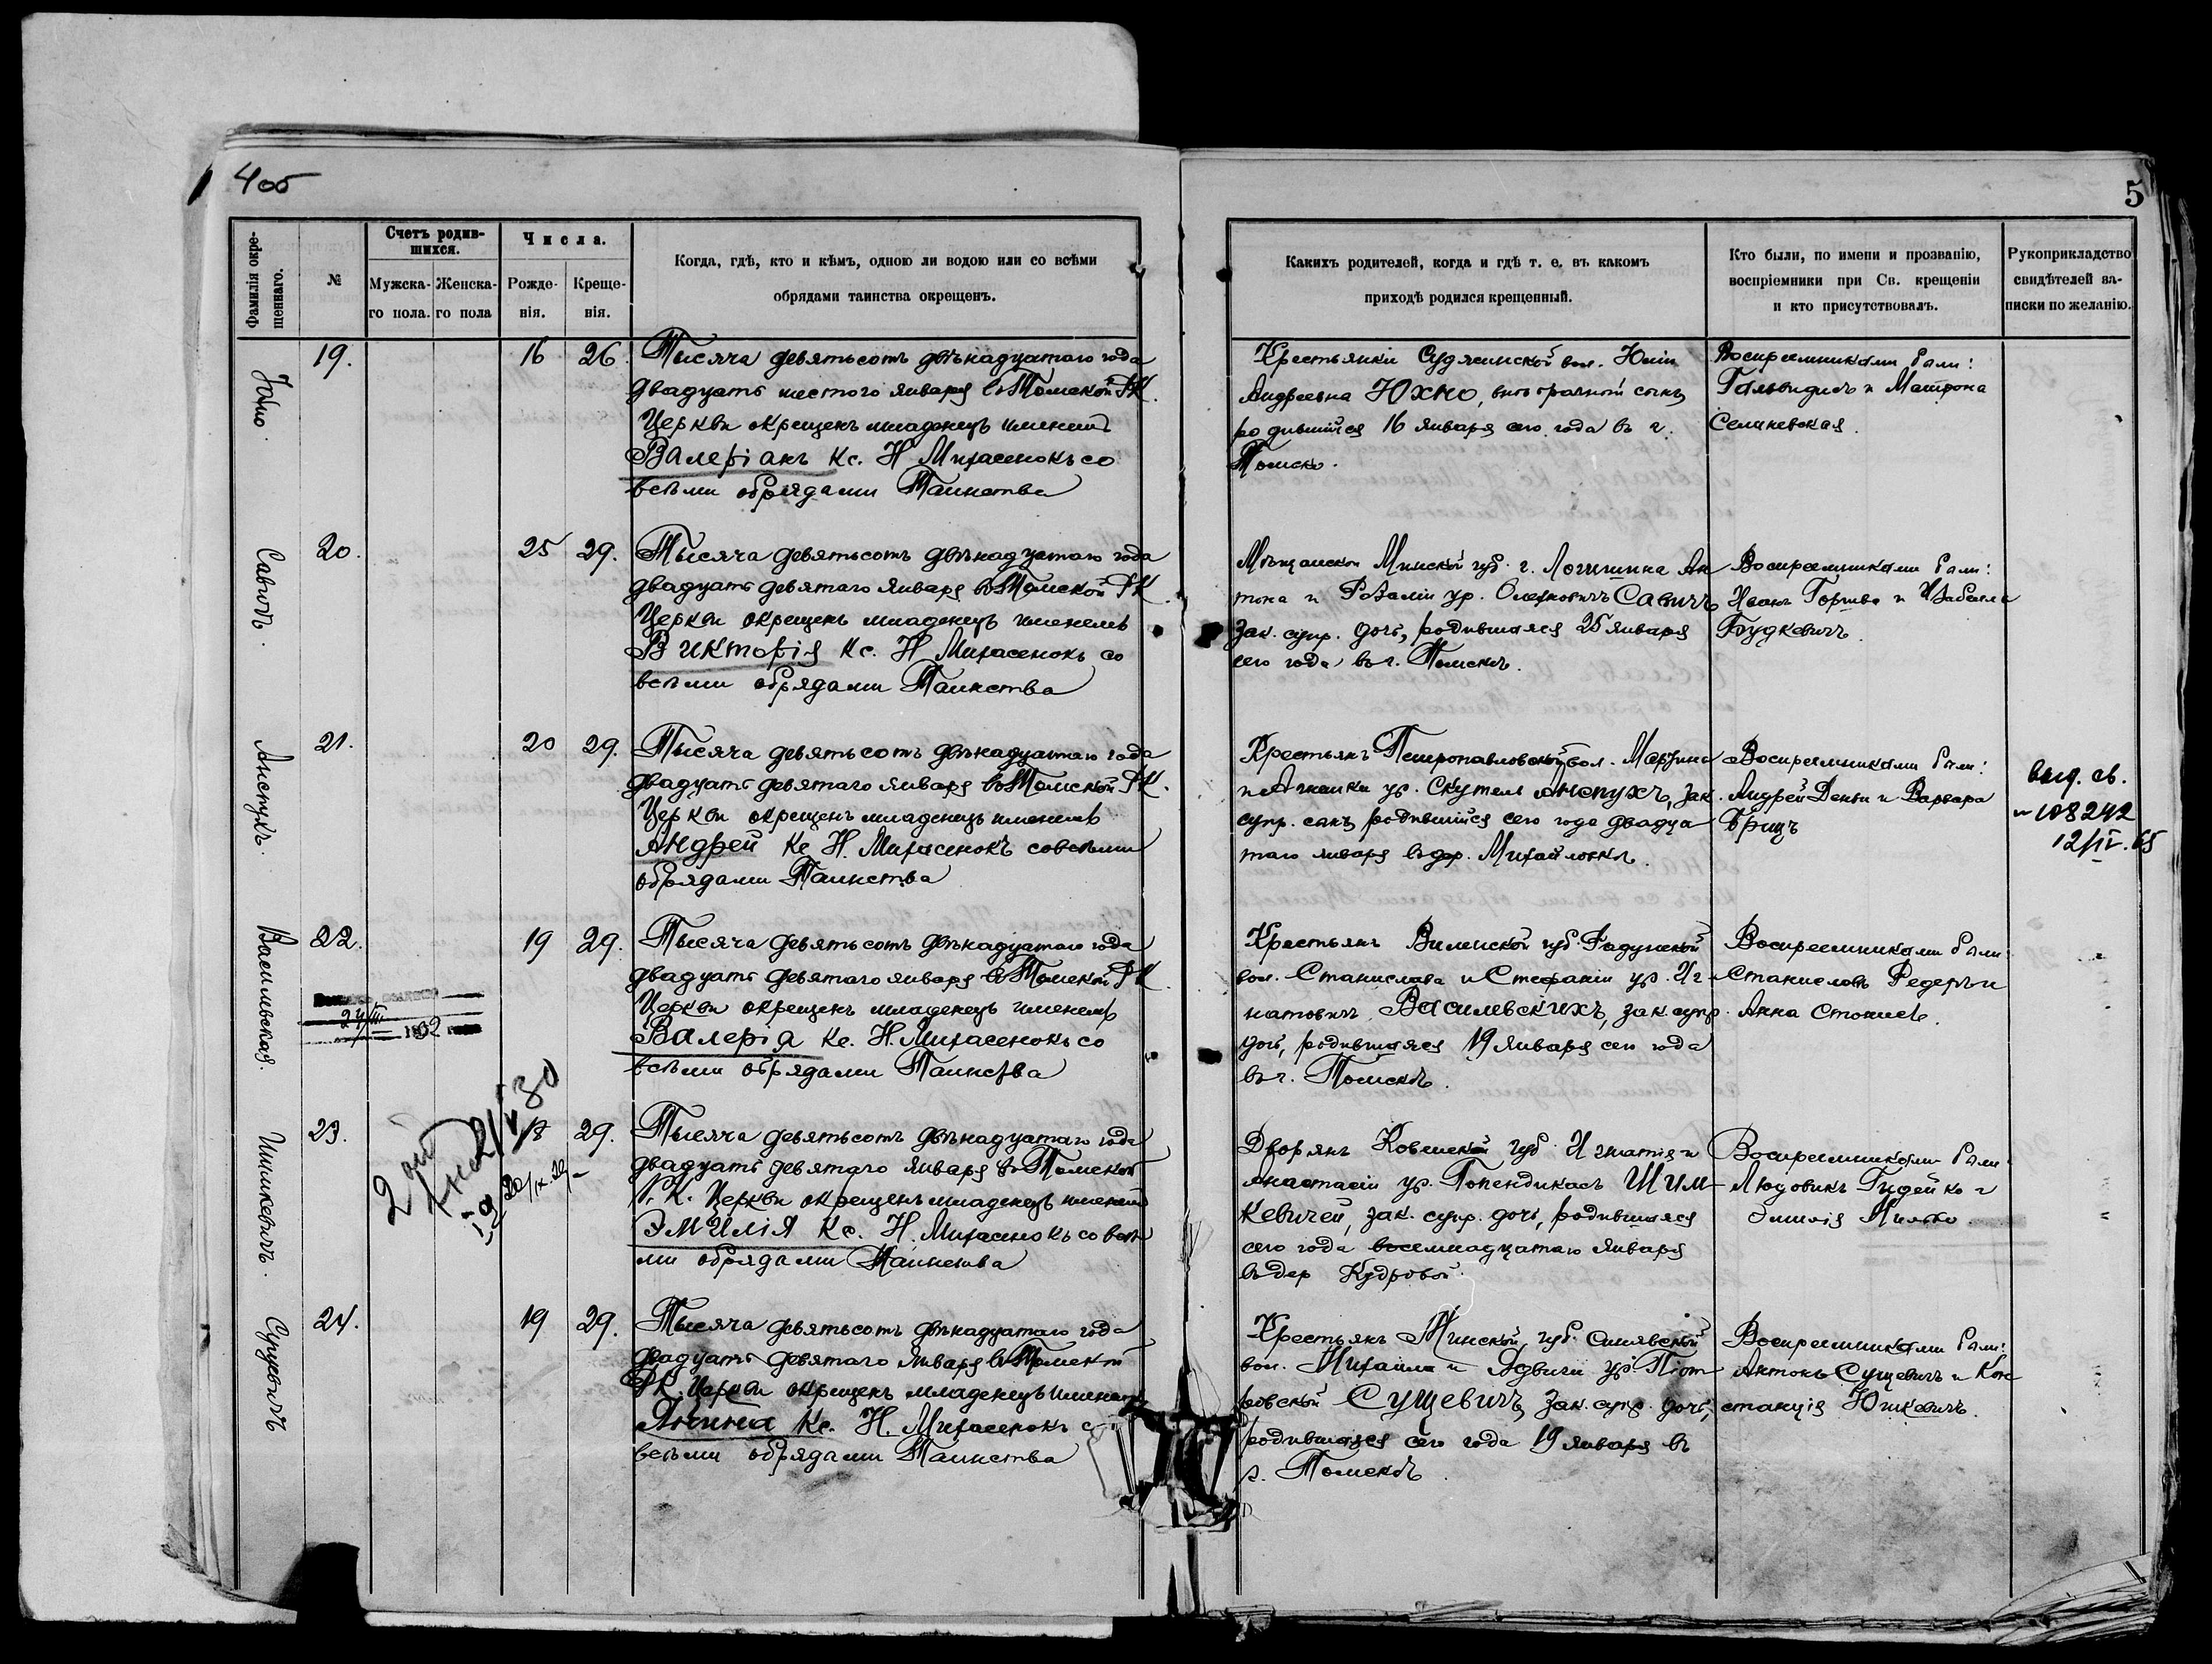 4 об
5
Фамилія окре-
щеннаго.
№
Счетъ родив-
шихся.
Мужска-
го пола.
Женска-
го пола
Числа.
Рожде-
нія.
Креще-
нія.
Когда, гдѣ, кто и кѣмъ, одною ли водою или со всѣми
обрядами таинства окрещенъ.
Какихъ родителей, когда и гдѣ т. е. въ какомъ
приходѣ родился крещенный.
Кто были, по имени и прозванію,
воспріемники при Св. крещеніи
и кто присутствовалъ.
Рукоприкладство
свидѣтелей за-
писки по желанію.
Юхно.
19.
16
26.
Тысяча девятьсотъ двѣнадцатаго года
двадцать шестого января въ Томской РК.
Церкви окрещенъ младенецъ именемъ
Валеріанъ Кс. Н Михасенокъ со
всѣми обрядами Таинства
Крестьянки Судженской вол. Юліи
Андреевна Юхно, внѣбрачный сынъ,
родившійся 16 января сего года въ г.
Томскѣ.
Воспреемниками были:
и Матрона
Селиневская.
Савичъ.
20.
25
29.
Тысяча девятьсотъ двѣнадцатаго года
двадцать девятаго января въ Томской РК
Церкви окрещенъ младенецъ именемъ
Викторія Кс. Н Михасенокъ со
всѣми обрядами Таинства
Мѣщанъ Минской губ. г. Логишина Ан
тона и Розаліи ур. Олешкевичъ Савичъ,
зак. супр. дочь, родившаяся 25 января
сего года въ г. Томскѣ.
Воспреемниками были:
Иванъ и Изабелла
Будкевичъ.
Анспухъ.
21.
20
29.
Тысяча девятьсотъ двѣнадцатаго года
двадцать девятаго января въ Томской РК.
Церкви окрещенъ младенецъ именемъ
Андрей Кс Н. Михасенокъ со всѣми
обрядами Таинства
Крестьянъ Петропавловской вол. Мартина
и Агнешки ур. Скутель Анспухъ, зак.
супр. сынъ, родившійся сего года двадца
таго января въ дер. Михайловкѣ.
Воспреемниками были:
Андрей и Варвара
Брицъ
выд. св.
№ 108242
12/IV.65
Василевская.
22.
24/III 1932 года
19
29.
Тысяча девятьсотъ двѣнадцатаго года
двадцать девятаго января въ Томской РК
Церкви окрещенъ младенецъ именемъ
Валерія Кс. Н. Михасенокъ со
всѣми обрядами Таинства
Крестьянъ Виленской губ. Радунской
вол. Станислава и Стефаніи ур. Иг-
натовичъ Василевскихъ, зак. супр.
дочь, родившаяся 19 января сего года
въ г. Томскѣ.
Воспреемниками были:
Станиславъ Редеръ и
Анна
Шимкевичъ.
23.
18
29.
Тысяча девятьсотъ двѣнадцатаго года
двадцать девятаго января въ Томской
Р. К. Церкви окрещенъ младенецъ именемъ
Эмилія Кс. Н. Михасенокъ со всѣ
ми обрядами Таинства
Дворянъ Ковенской губ Игнатія и
Анастасіи ур. Гопендикасъ Шим-
кевичей, зак. супр. дочь, родившаяся
сего года восемнадцатаго января
въ дер Кудровой.
Воспреемниками были:
Людовикъ Гидейко и
Эмилія
"
Сущевичъ
24.
19
29.
Тысяча девятьсотъ двѣнадцатаго года
двадцать девятаго января въ Томской
РК. Церкви окрещенъ младенецъ именемъ
Янина Кс. Н. Михасенокъ с
всѣми обрядами Таинства
Крестьянъ Минской губ. Синявской
вол. Михаила и Ядвиги ур. Піот
ровской Сущевичъ, зак. супр. дочь,
родившаяся сего года 19 января въ
г. Томскѣ.
Воспреемниками были:
Антонъ Сущевичъ и Кон
станція Юшкевичъ.